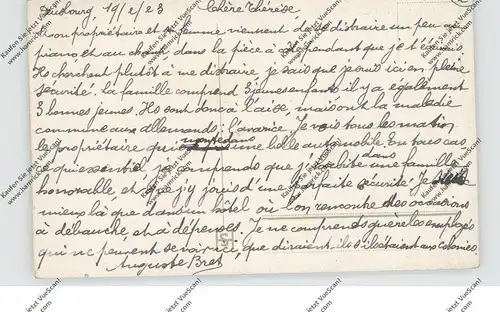 Duisbourg 19/2/23 Chère Thérèse
Mon propriétaire et sa femme viennent de se distraire un peu au
piano et au chant dans la pièce à côté pendant que je t'écrivais
Ils cherchent plutôt à me distraire, je sais que je suis ici en pleine
sécurité. la famille comprend 3 jeunes enfants il y a également
3 bonnes jeunes. Ils sont donc à l'aise, mais ont la maladie
commune aux allemands: l'avarice. Je vois tous les matin
le propriétaire qui monte dans une belle automobile. En tous cas
ce qui essentiel, je comprends que j'habite dans une famille
honorable et que j'y jouis d'une parfaite sécurité. Je suis
mieux là que dans un hôtel où l'on rencontre des occasions
à débauche, et à dépenses. Je ne comprends guère les employés
qui ne peuvent se voir ici, que diraient-ils s'ils étaient aux Colonies.
Auguste Bret